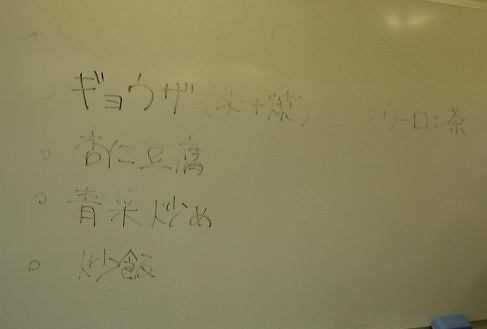 。ギョウザ(水+焼)
。杏仁豆腐
。青菜炒め
。炒飯
。ウーロン茶